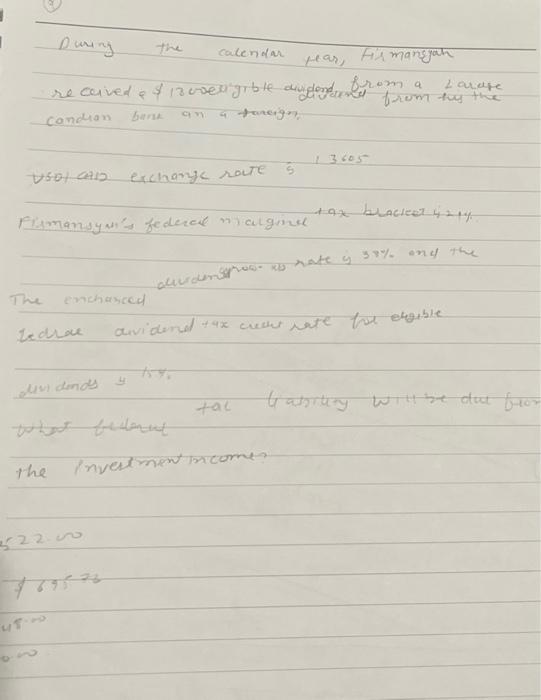 During the calendar year, Firmansyah
received a $ 1200 eligible dividend from a Large
dividend from his the
candian bank an a foreign.
USD/CAD exchange rate is 1.3605
Firmansyah's federal marginal tax bracket is 29%.
dividend gross-up rate is 38% and the
The enchanced
fedrae dividend tax credit rate for eligible
dividends is 15%.
tac liability will be due from
What federal
the Investment income?
522.00
$ 695 76
48.00
0.00